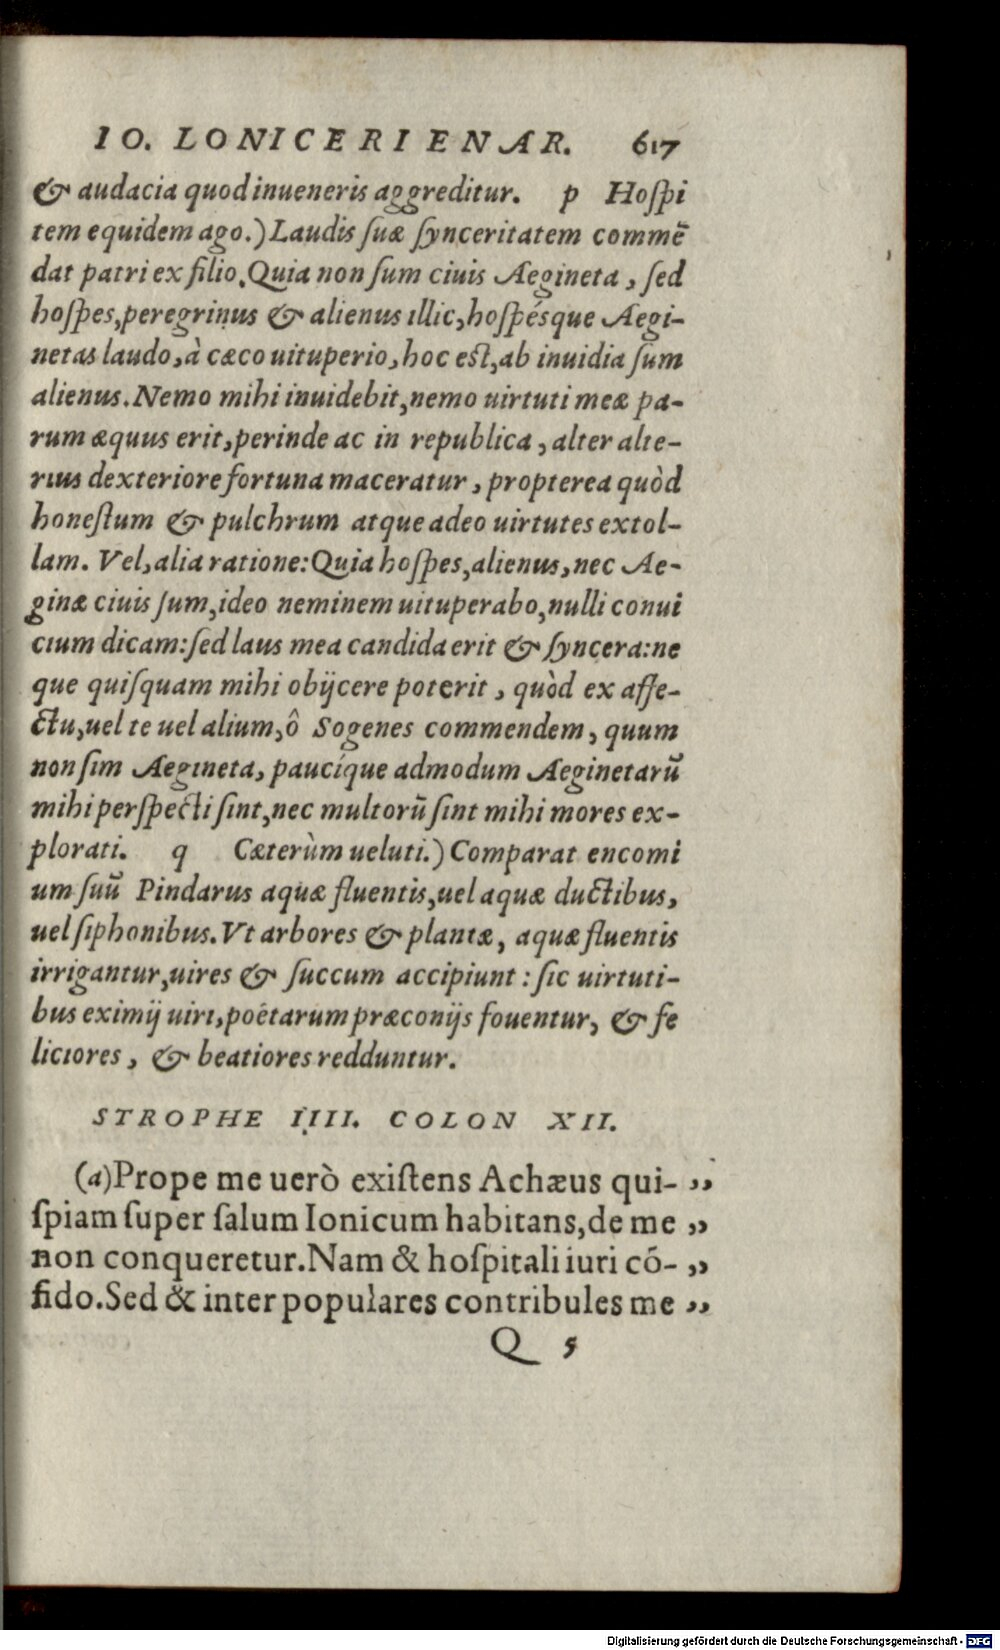 IO. LONICERI ENAR. 617
& audacia quod inueneris aggreditur. p Hoſpi
tem equidem ago.) Laudis ſuæ ſynceritatem commē
dat patri ex filio. Quia non ſum ciuis Aegineta, ſed
hoſpes, peregrinus & alienus illic, hoſpésque Aegi-
netas laudo, à cæco uituperio, hoc eſt, ab inuidia ſum
alienus. Nemo mihi inuidebit, nemo uirtuti meæ pa-
rum æquus erit, perinde ac in republica, alter alte-
rius dexteriore fortuna maceratur, propterea quòd
honeſtum & pulchrum atque adeo uirtutes extol-
lam. Vel, alia ratione: Quia hoſpes, alienus, nec Ae-
ginæ ciuis ſum, ideo neminem uituperabo, nulli conui
cium dicam: ſed laus mea candida erit & ſyncera: ne
que quiſquam mihi obijcere poterit, quòd ex affe-
ctu, uel te uel alium, ô Sogenes commendem, quum
non ſim Aegineta, paucíque admodum Aeginetarū
mihi perſpecti ſint, nec multorū ſint mihi mores ex-
plorati. q Cæterùm ueluti.) Comparat encomi
um ſuū Pindarus aquæ fluentis, uel aquæ ductibus,
uel ſiphonibus. Vt arbores & plantæ, aquæ fluentis
irrigantur, uires & ſuccum accipiunt: ſic uirtuti-
bus eximij uiri, poëtarum præconijs fouentur, & fe
liciores, & beatiores redduntur.
STROPHE IIII. COLON XII.
(a) Prope me uerò exiſtens Achæus qui- „
ſpiam ſuper ſalum Ionicum habitans, de me „
non conqueretur. Nam & hoſpitali iuri cō- „
fido. Sed & inter populares contribules me „
Q 5
Digitalisierung gefördert durch die Deutsche Forschungsgemeinschaft - DFG